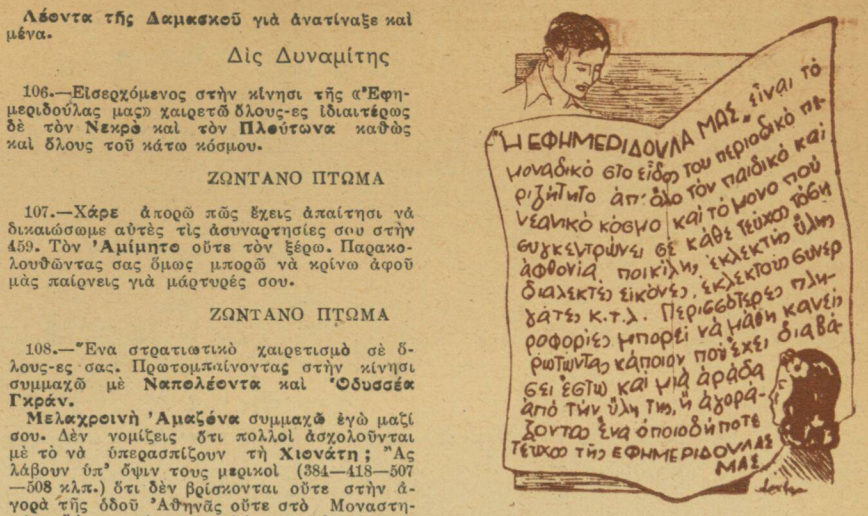 Λέοντα τῆς Δαμασκοῦ γιὰ ἀνατίναξε καὶ
μένα.
Δὶς Δυναμίτης
106.—Εἰσερχόμενος στὴν κίνησι τῆς «Ἐφη-
μεριδούλας μας» χαιρετῶ ὅλους-ες ἰδιαιτέρως
δὲ τὸν Νεκρὸ καὶ τὸν Πλούτωνα καθὼς
καὶ ὅλους τοῦ κάτω κόσμου.
ΖΩΝΤΑΝΟ ΠΤΩΜΑ
107.—Χάρε ἀπορῶ πῶς ἔχεις ἀπαίτησι νὰ
δικαιώσωμε αὐτὲς τὶς ἀσυναρτησίες σου στὴν
459. Τὸν Ἀμίμητο οὔτε τὸν ξέρω. Παρακο-
λουθῶντας σας ὅμως μπορῶ νὰ κρίνω ἀφοῦ
μὰς παίρνεις γιὰ μάρτυρές σου.
ΖΩΝΤΑΝΟ ΠΤΩΜΑ
108.—Ἕνα στρατιωτικὸ χαιρετισμὸ σὲ ὅ-
λους-ες σας. Πρωτομπαίνοντας στὴν κίνησι
συμμαχῶ μὲ Ναπολέοντα καὶ Ὀδυσσέα
Γκράν.
Μελαχροινὴ Ἀμαζόνα συμμαχῶ ἐγὼ μαζί
σου. Δὲν νομίζεις ὅτι πολλοὶ ἀσχολοῦνται
μὲ τὸ νὰ ὑπερασπίζουν τὴ Χιονάτη; Ἂς
λάβουν ὑπ' ὄψιν τους μερικοὶ (384—418—507
—508 κλπ.) ὅτι δὲν βρίσκονται οὔτε στὴν ἀ-
γορὰ τῆς ὁδοῦ Ἀθηνᾶς οὔτε στὸ Μοναστη-
"Η ΕΦΗΜΕΡΙΔΟΥΛΑ ΜΑΣ" εἶναι τὸ
μοναδικὸ στο εἶδος του περιοδικὸ πε-
ριζήτητο ἀπ' ὅλο τὸν παιδικὸ καὶ
νεανικὸ κόσμο καὶ τὸ μονο ποὺ
συγκεντρώνει σὲ κάθε τεύχος τόση
ἀφθονία ποικίλης, ἐκλεκτῆς ὕλης
διαλεκτές εἰκόνες, ἐκλεκτοὺς συνερ
γάτες κ.τ.λ. Περισσότερες πλη-
ροφορίες μπορεῖ νὰ μάθη κανεὶς
ρωτῶντας κάποιον ποὺ ἔχει διαβά-
σει ἔστω καὶ μιὰ ἀράδα
ἀπὸ τὴν ὕλη της, ἢ ἀγορά-
ζοντας ἕνα ὁποιοδήποτε
τεῦχος τῆς ΕΦΗΜΕΡΙΔΟΥΛΑΣ
ΜΑΣ